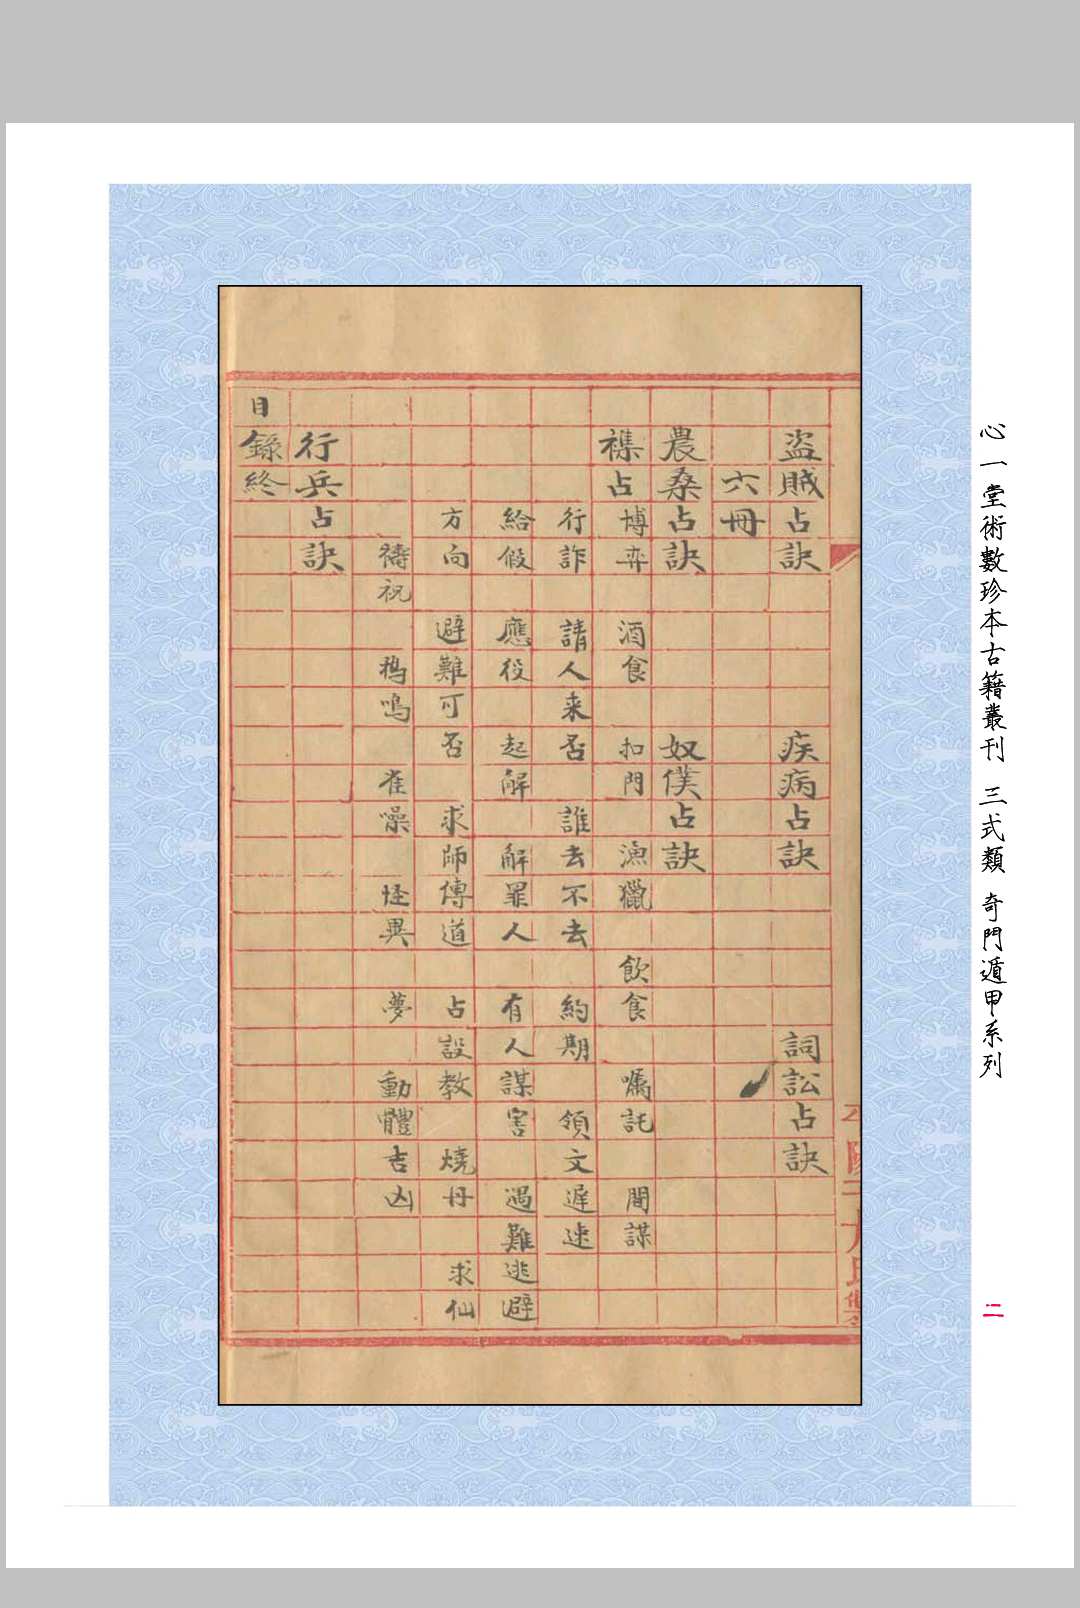 心一堂術數珍本古籍叢刊 三式類 奇門遁甲系列
二
盜賊占訣 疾病占訣 詞訟占訣
六冊
農桑占訣 奴僕占訣
襍占 博弈 酒食 扣門 漁獵 飲食 囑託 間謀
行詐 請人来否 誰去不去 約期 領文遲速
給假 應役 起解 解罪人 有人謀害 遇難逃避
方向 避難可否 求師傳道 占設教 燒丹 求仙
禱祝 鴉鳴 雀噪 怪異 夢 動體吉凶
行兵占訣
目錄終